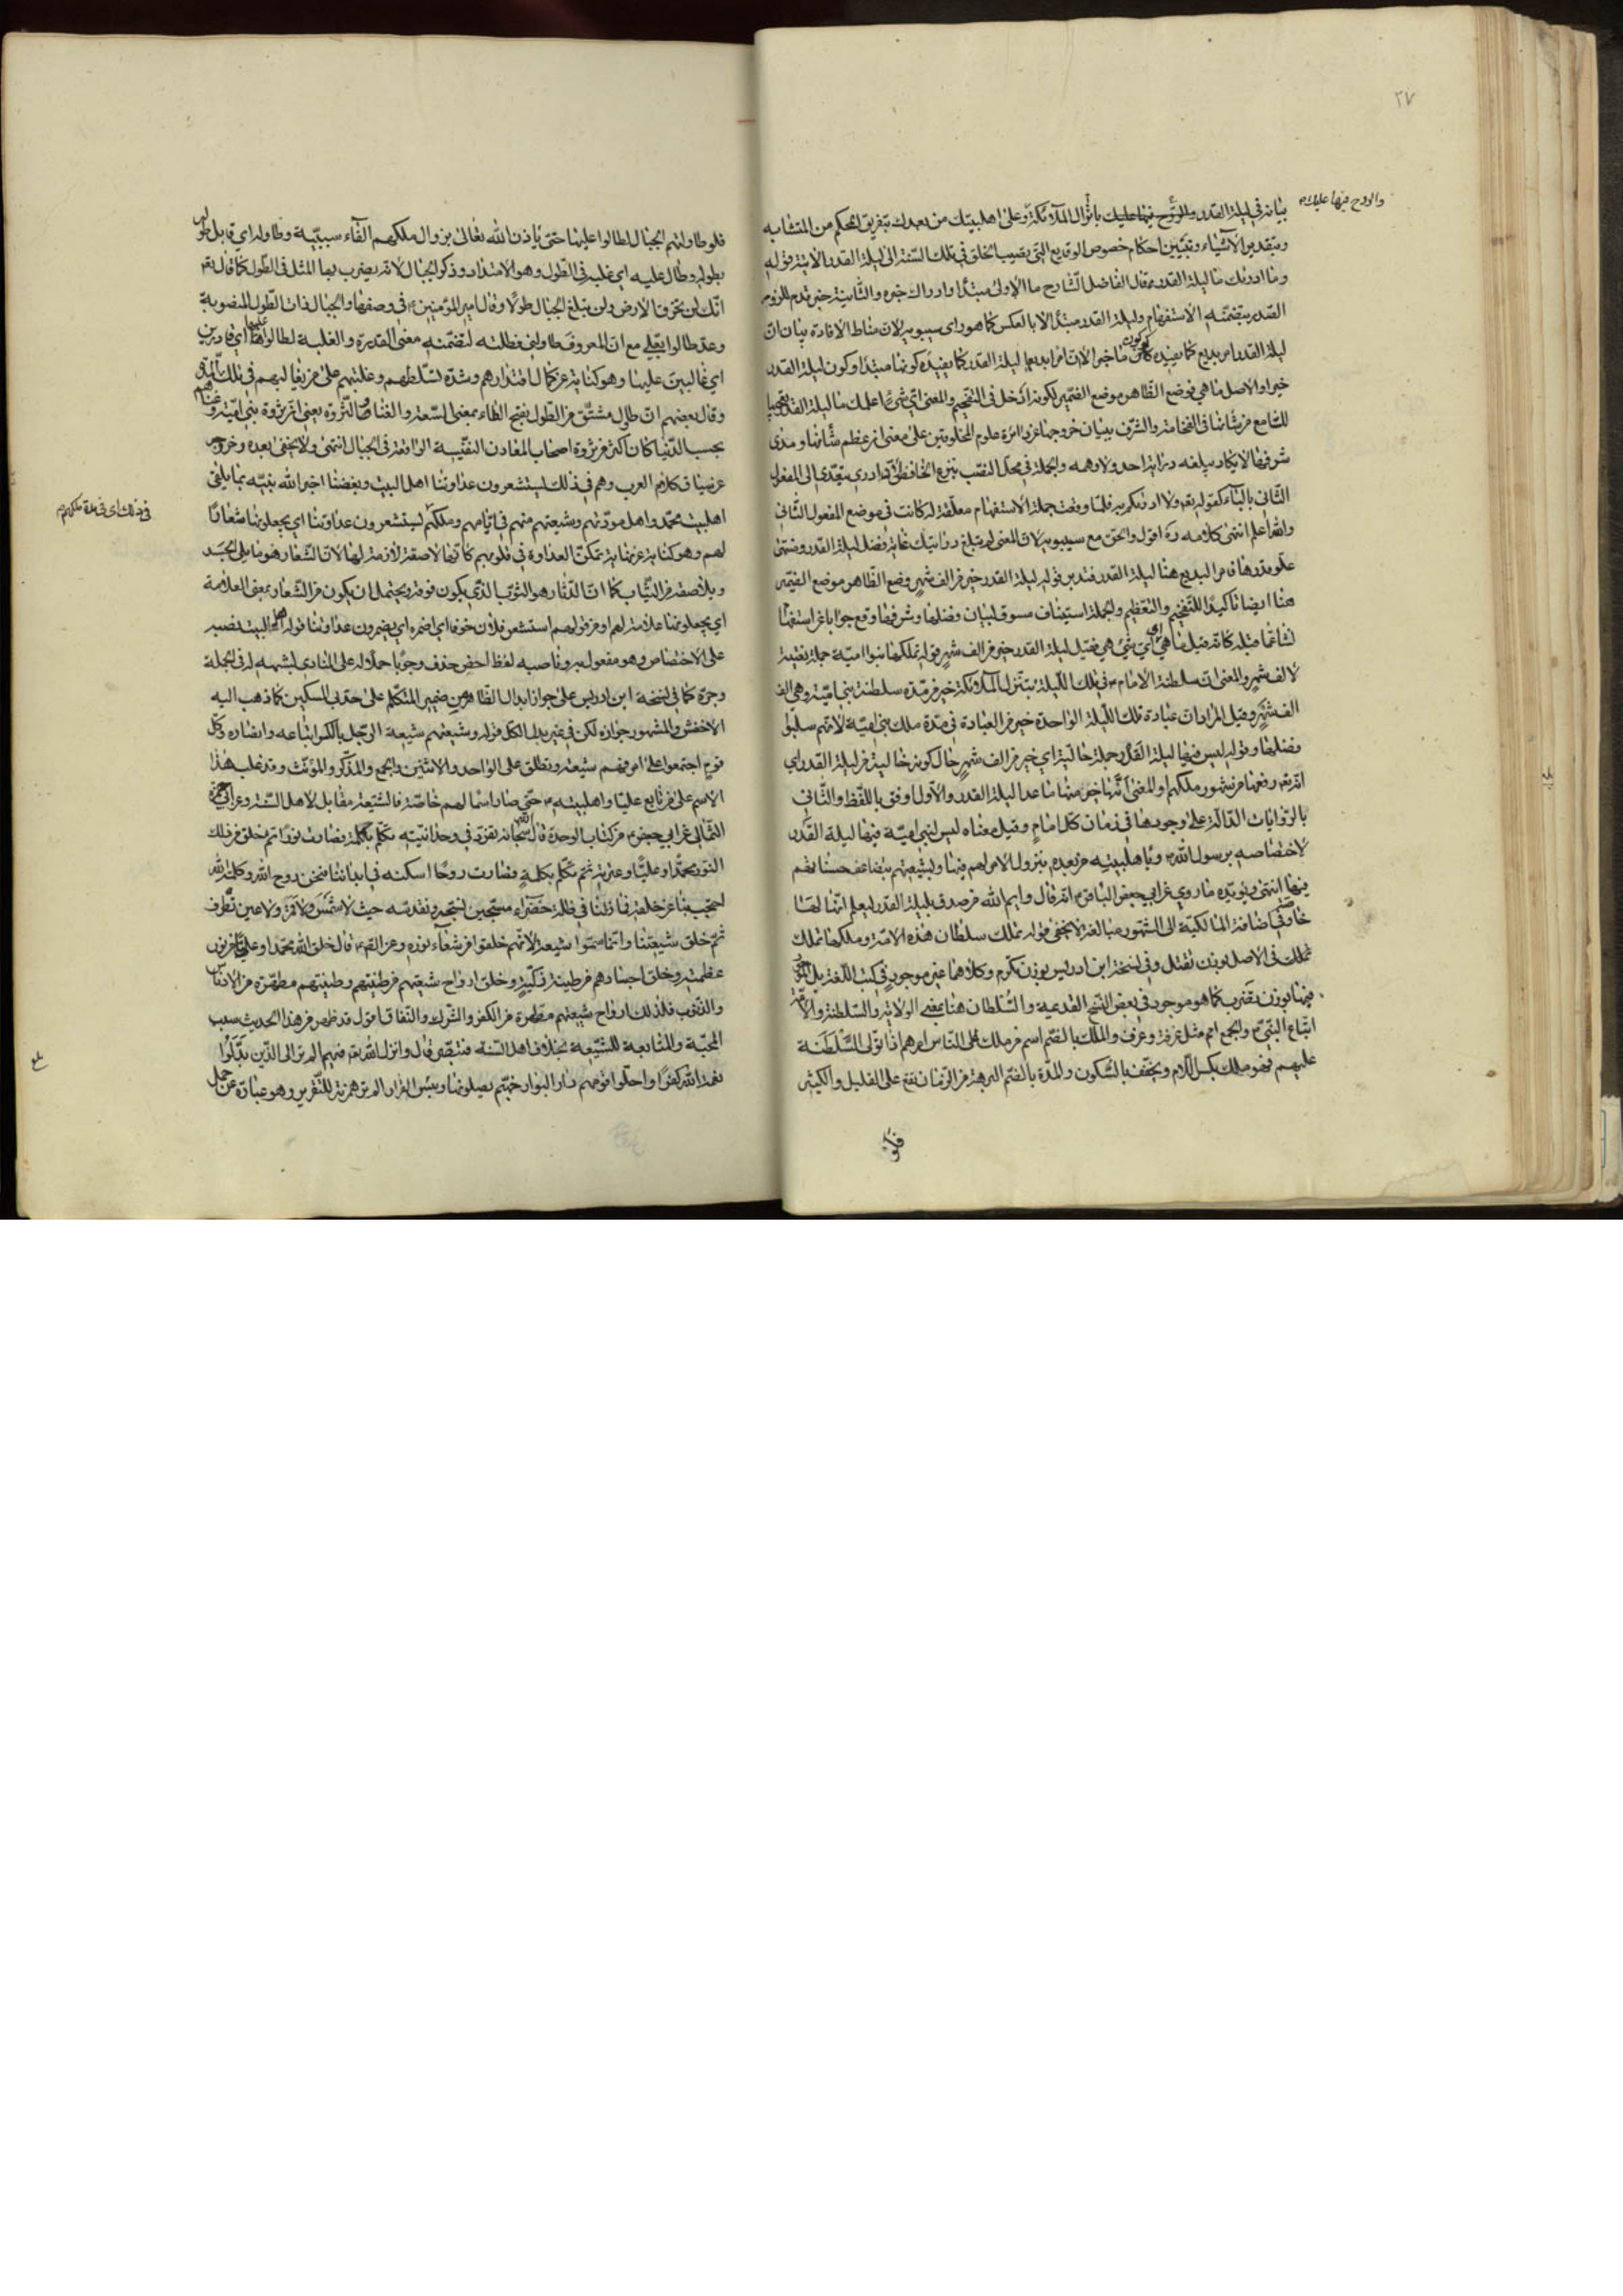 ٢٧
والروح فيها عليك
بيانه في ليلة القدر والروح فيها عليك بانزال الملائكة وعلى اهلبيتك من بعدك بتفريق المحكم من المتشابه
وبتقدير الاشياء وتبيين احكام خصوص الوقايع التي تصيب الخلق في تلك السنة الى ليلة القدر الاتية قوله
وما ادرىك ما ليلة القدر قال الفاضل الشارح ما الاولى مبتدأ وادراك خبره والثانية خبر قدم للزوم
الصدر بتضمنه الاستفهام وليلة القدر مبتدأ لا بالعكس كما هو راى سيبويه لان مناط الافادة بيان ان
ليلة القدر امر بديع كما يفيده كون ما خبرا لان امرا بديعا ليلة القدر كما يفيده كونها مبتدأ وكون ليلة القدر
خبرا والاصل ما هي فوضع الظاهر موضع الضمير لكونه ادخل في التفخيم والمعنى اي شيء اعلمك ما ليلة القدر تعجيبا
للسامع من شانها في الفخامة والشرف ببيان خروجها عن دائرة علوم المخلوقين على معنى ان عظم شأنها ومدى
شرفها لا يكاد يبلغه دراية احد ولا وهمه والجملة في محل النصب بنزع الخافض لان ادرى يتعدى الى المفعول
الثاني بالباء كقوله تعم ولا ادريكم به فلما وقعت جملة الاستفهام معلقة له كانت في موضع المفعول الثاني
والله اعلم انتهى كلامه ره اقول والحق مع سيبويه لان المعنى لم تبلغ درايتك غاية فضل ليلة القدر ومنتهى
علو قدرها فامر البديع هنا ليلة القدر فتدبر قوله ليلة القدر خير من الف شهر وضع الظاهر موضع الضمير
هنا ايضا تاكيدا للتفخيم والتعظيم والجملة استيناف مسوق لبيان فضلها وشرفها وقع جوابا عن استفهام
نشا عما قبله كانه قيل ما هي اي شيء هي فقيل ليلة القدر خير من الف شهر قوله تملكها بنوا امية جملة نعتية
لالف شهر والمعنى ان سلطنة الامام في تلك الليلة بتنزل الملائكة خير من مدة سلطنة بني امية وهي الف
الف شهر وقيل المراد ان عبادة تلك الليلة الواحدة خير من العبادة في مدة ملك بني امية لانهم سلبوا
فضلها وقوله ليس فيها ليلة القدر جملة حالية اي خير من الف شهر حال كونه خالية من ليلة القدر اي
انه تعم رفعها من شهور ملكهم والمعنى انها خير منها ما عدا ليلة القدر والاول اوفق باللفظ والثاني
بالروايات الدالة على وجودها في زمان كل امام وقيل معناه ليس لبني امية فيها ليلة القدر
لاختصاصه برسول الله وباهلبيته من بعده بنزول الامر لهم فيها ولشيعتهم بتضاعف حسناتهم
فيها انتهى ويؤيده ما روي عن ابي جعفر الباقر انه قال وايم الله من صدق بليلة القدر ليعلم انها لنا
خاصة في اضافة المالكية الى الشهور مبالغة لا يخفى قوله تملك سلطان هذه الامة وملكها تملك
تملك في الاصل بوزن تفتل وفي نسخة ابن ادريس بوزن تكرم وكلاهما غير موجود في كتب اللغة بل الموجود
فيها بوزن تضرب كما هو موجود في بعض النسخ القديمة والسلطان هنا بمعنى الولاية والسلطنة والامة
اتباع النبي والجمع امم مثل غرفة وغرف والملك بالضم اسم من ملك على الناس امرهم اذا تولى السلطنة
عليهم فهو ملك بكسر اللام ويخفف بالسكون والمدة بالضم البرهة من الزمان تقع على القليل والكثير
فلو
فلو طاولتهم الجبال لطالوا عليها حتى ياذن الله تعالى بزوال ملكهم الفاء سببية وطاوله اي قابل طوله
بطوله وطال عليه اي غلبه في الطول وهو الامتداد وذكر الجبال لانه يضرب بها المثل في الطول كما قال تعم
انك لن تخرق الارض ولن تبلغ الجبال طولا وقال امير المؤمنين في وصفها والجبال ذات الطول المنصوبة
وعدى طالوا بعلى مع ان المعروف طاولني فطلته لتضمنه معنى القدرة والغلبة لطالوا عليها اي قادرين
اي غالبين عليها وهو كناية عن كمال اقتدارهم وشدة تسلطهم وغلبتهم على من يغالبهم في تلك المدة
وقال بعضهم ان طال مشتق من الطول بفتح الطاء بمعنى السعة والغنا والثروة يعني ان ثروة بني امية وغناهم
بحسب الدنيا كان اكثر من ثروة اصحاب المعادن النفيسة الواقعة في الجبال انتهى ولا يخفى بعده وخروجه
عن ضياق كلام العرب وهم في ذلك يستشعرون عداوتنا اهل البيت وبغضنا اخبر الله نبيه بما يلقى
في ذلك اي في مدة ملكهم
اهلبيت محمد واهل مودتهم وشيعتهم منهم في ايامهم وملكهم ليستشعرون عداوتنا اي يجعلونها شعارا
لهم وهو كناية عن نهاية تمكن العداوة في قلوبهم كانها لاصقة لازمة لها لان الشعار هو ما يلي الجسد
ويلاصقه من الثياب كما ان الدثار هو الثوب الذي يكون فوقه ويحتمل ان يكون من الشعار بمعنى العلامة
اي يجعلونها علامة لهم او من قولهم استشعر فلان خوفا اي اضمره اي يضمرون عداوتنا قوله اهل البيت نصب
على الاختصاص وهو مفعول به وناصبه لفظ اخص حذف وجوبا حملا له على المنادى لشبهه له في الجملة
وجره كما في نسخة ابن ادريس على جواز ابدال الظاهر من ضمير المتكلم على حد بي المسكين كما ذهب اليه
الاخفش والمشهور جوازه لكن في غير بدل الكل قوله وشيعتهم شيعة الرجل بالكسر اتباعه وانصاره وكل
قوم اجتمعوا على امر فهم شيعة وتطلق على الواحد والاثنين والجمع والمذكر والمؤنث وقد غلب هذا
الاسم على من تابع عليا واهلبيته حتى صار اسما لهم خاصة فالشيعة مقابل لاهل السنة وعن ابي حمزة
الثمالي عن ابي جعفر من كتاب الوحدة قال ان الله سبحانه تفرد في وحدانيته تكلم بكلمة فصارت نورا ثم خلق من ذلك
النور محمدا وعليا وعترته ثم تكلم بكلمة فصارت روحا اسكنه في ابداننا فنحن روح الله وكلمة الله
احتجب بنا عن خلقه فما زلنا في ظلة خضراء مسبحين نسبحه ونقدسه حيث لا شمس ولا قمر ولا عين تطرف
ثم خلق شيعتنا وانما سموا شيعة لانهم خلقوا من شعاع نوره وعن القوم قال خلق الله محمدا وعليا من نور
عظمته وخلق اجسادهم من طينة زكية وخلق ارواح شيعتهم من طينتهم وطينتهم مطهرة من الادناس
والذنوب فلذلك ارواح شيعتهم مطهرة من الكفر والشرك والنفاق اقول قد ظهر من هذا الحديث سبب
المحبة والمتابعة للشيعة بخلاف اهل السنة فتبصر قال وانزل الله تعم فيهم الم تر الى الذين بدلوا
نعمة الله كفرا واحلوا قومهم دار البوار جهنم يصلونها وبئس القرار الم تر همزته للتقرير وهو عبارة عن حمل